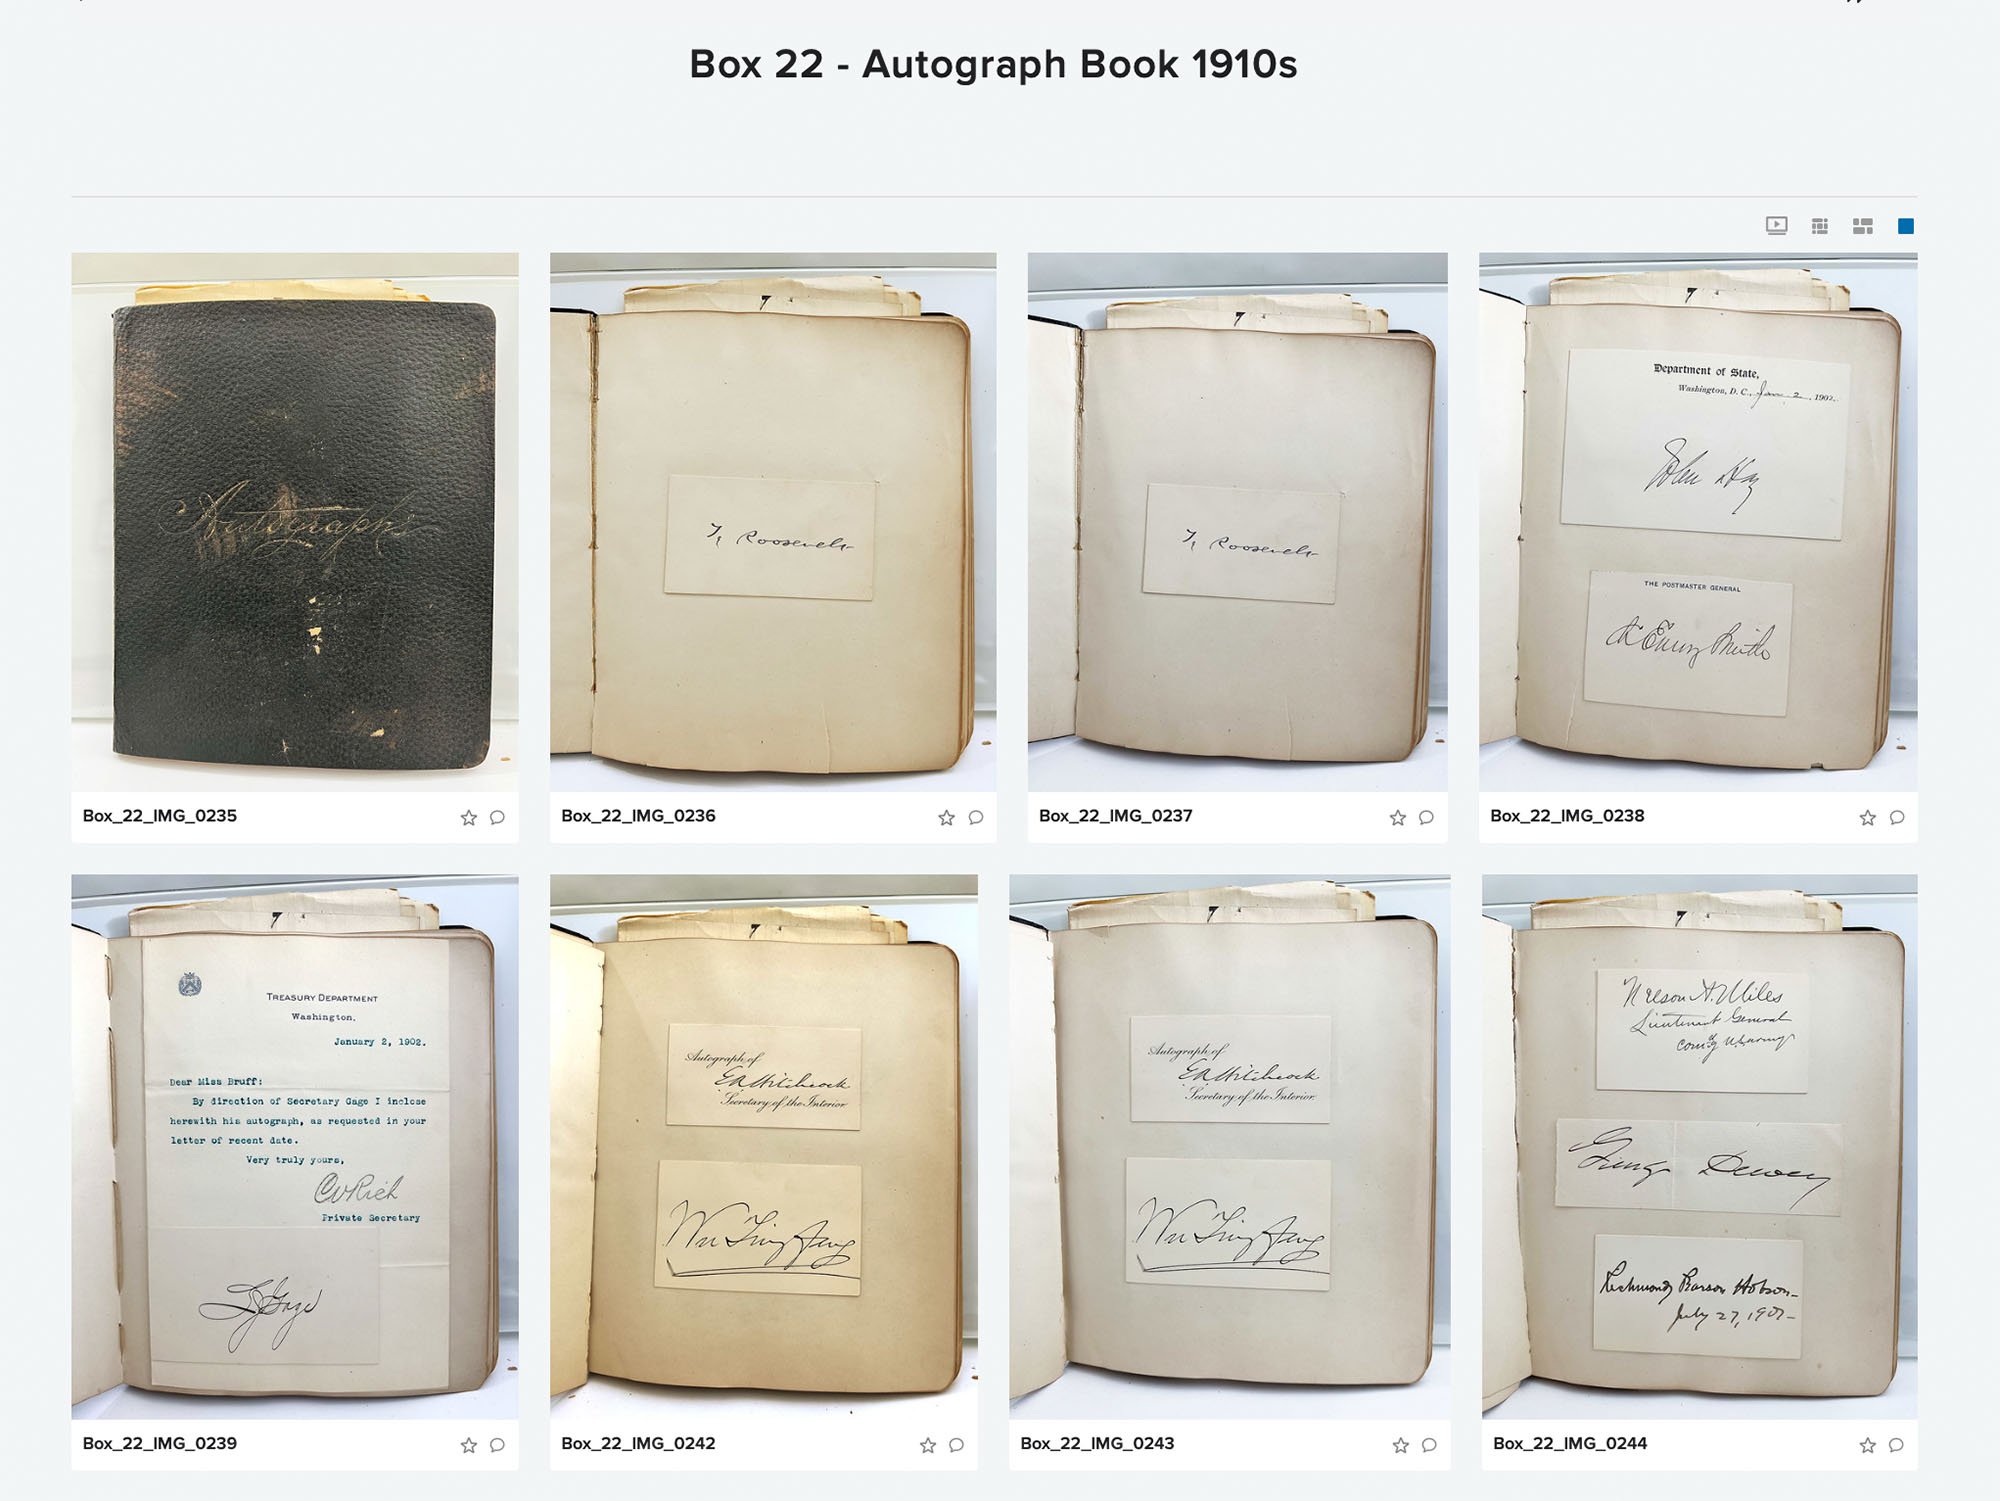 Box 22 - Autograph Book 1910s
Autographs
Box_22_IMG_0235
7
T. Roosevelt
Box_22_IMG_0236
7
T. Roosevelt
Box_22_IMG_0237
7
Department of State,
Washington, D. C., Jan 2, 1902.
John Hay
THE POSTMASTER GENERAL
Ch Emory Smith
Box_22_IMG_0238
7
TREASURY DEPARTMENT
Washington.
January 2, 1902.
Dear Miss Bruff:
By direction of Secretary Gage I inclose
herewith his autograph, as requested in your
letter of recent date.
Very truly yours,
CvRich
Private Secretary
LJGage
Box_22_IMG_0239
7
Autograph of
EAHitchcock
Secretary of the Interior.
Wu Ting Fang
Box_22_IMG_0242
7
Autograph of
EAHitchcock
Secretary of the Interior.
Wu Ting Fang
Box_22_IMG_0243
7
Nelson A. Miles
Lieutenant General
Com'g U.S. army
George Dewey
Richmond Pearson Hobson-
July 27, 1901-
Box_22_IMG_0244